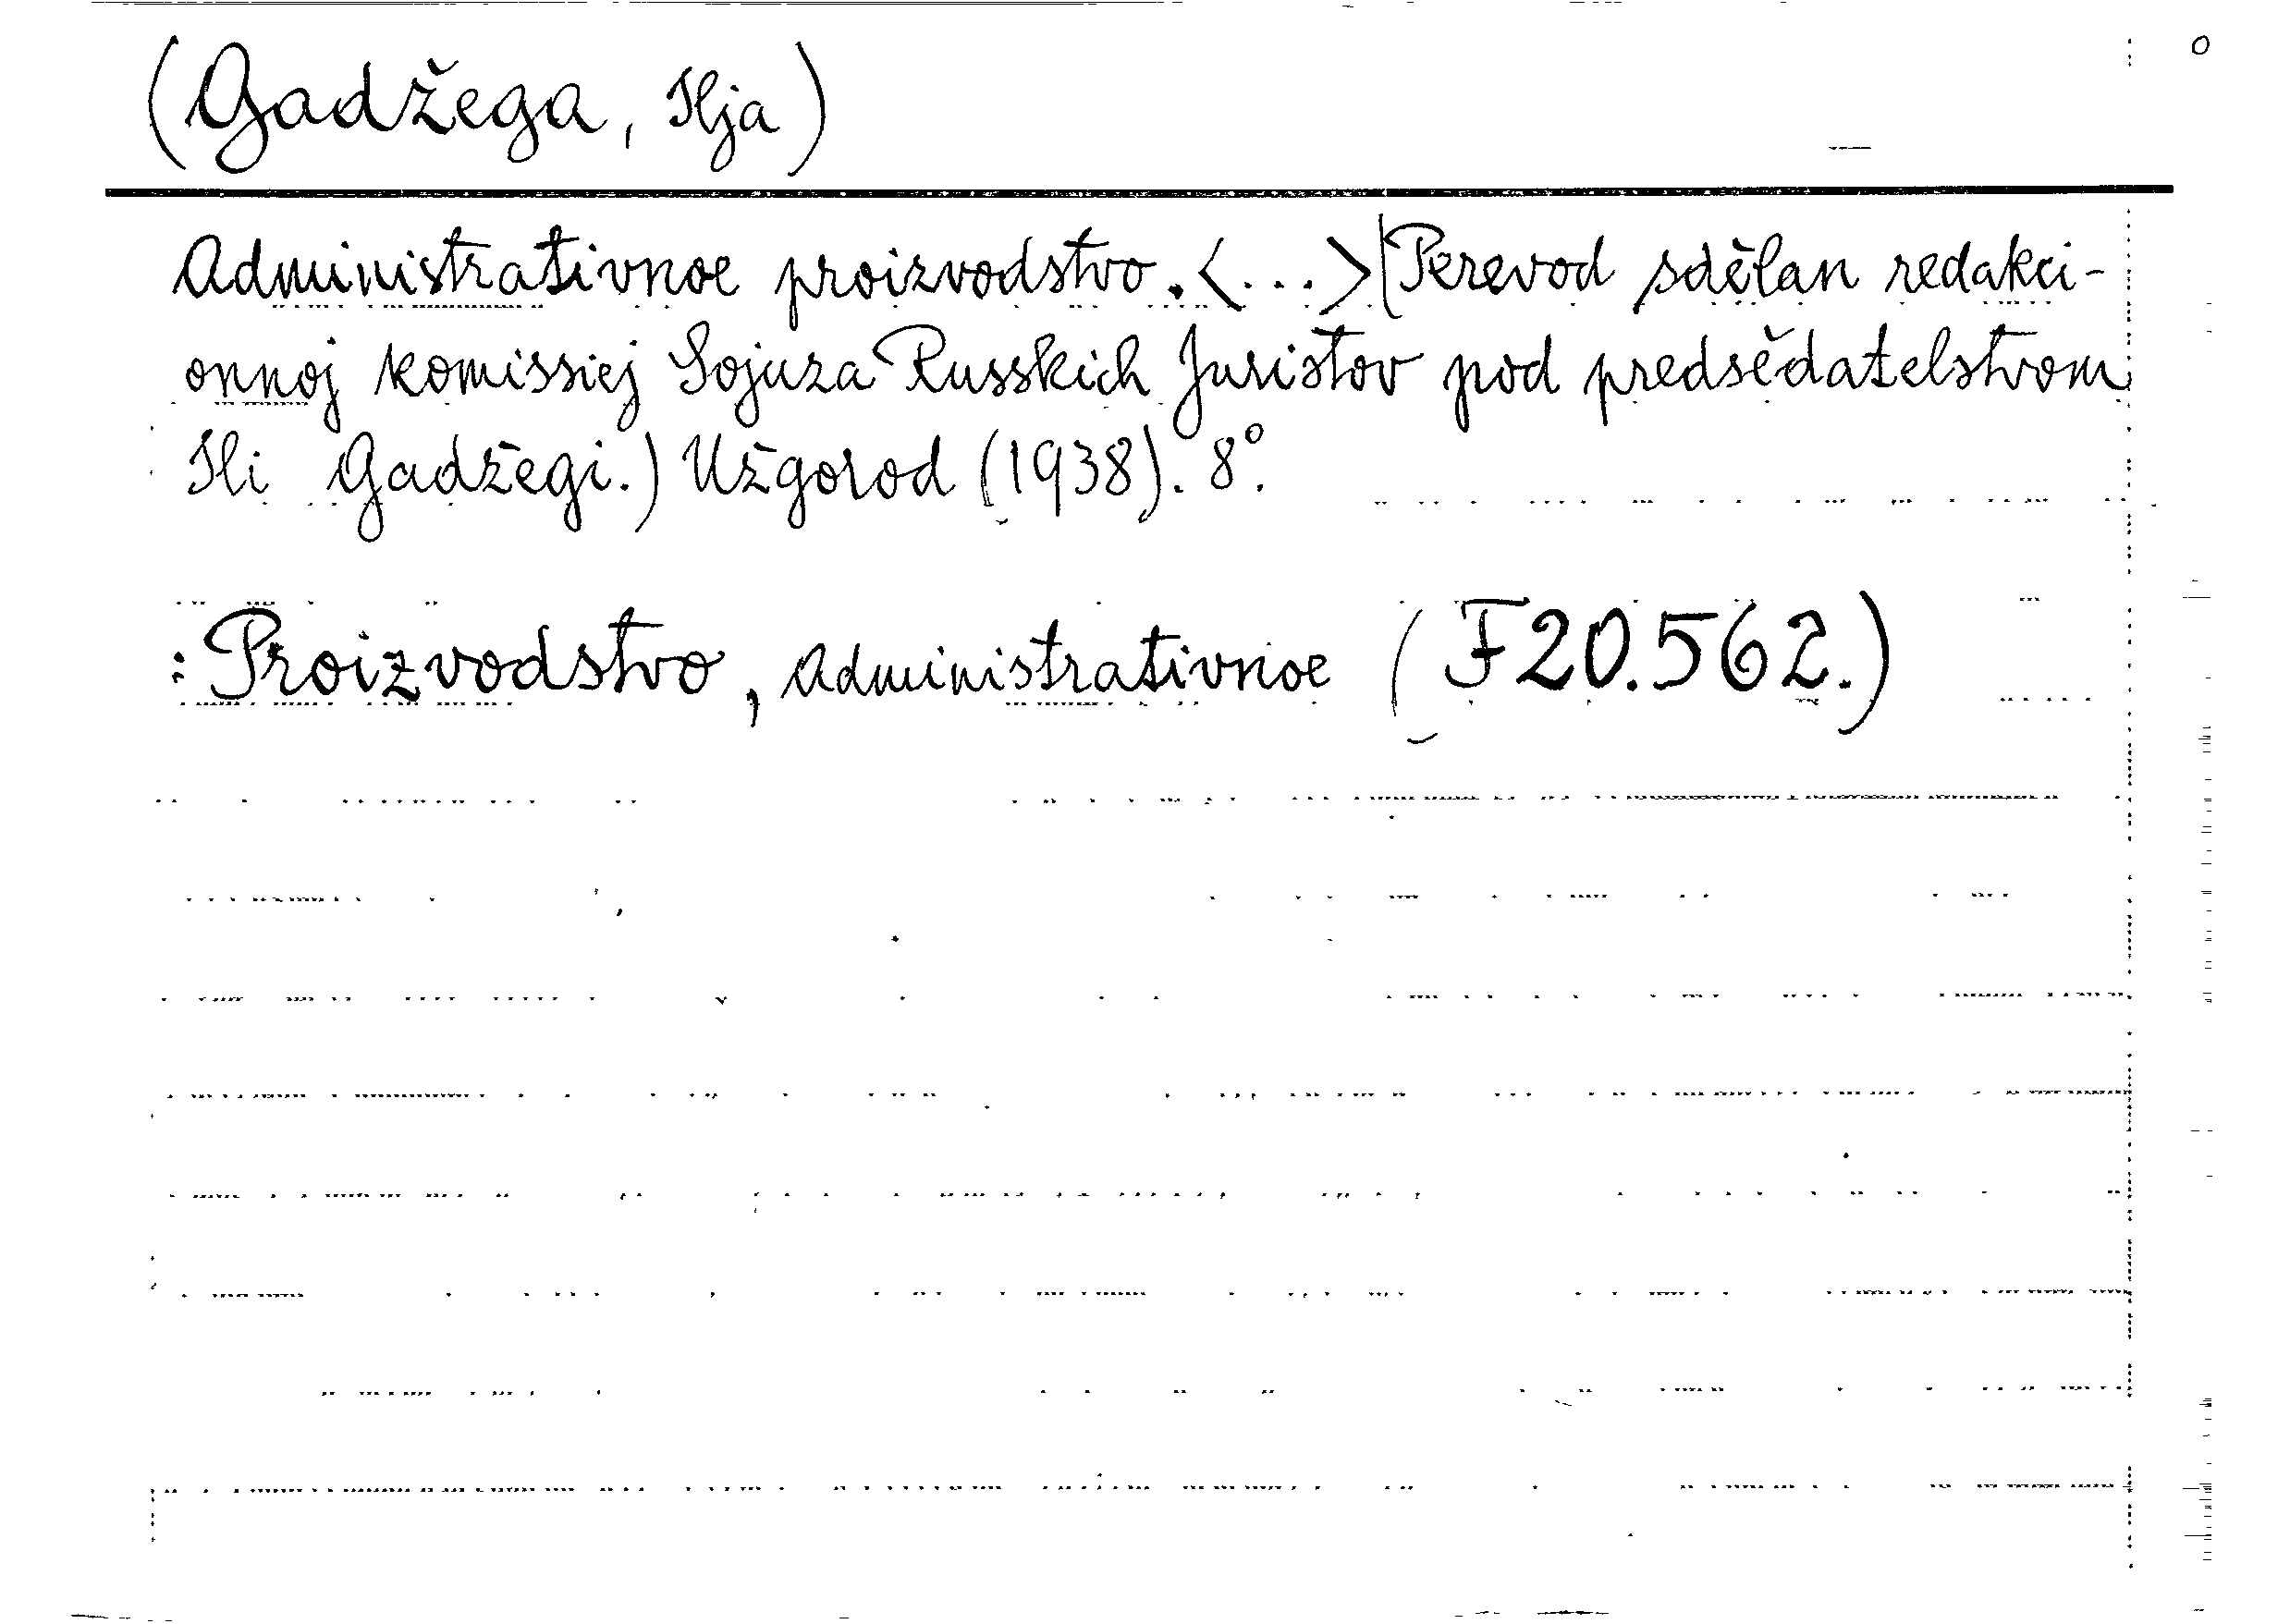 (Gadžega, Ilja)
o
Administrativnoe proizvodstvo. <...> (Perevod sdělan redakci-
onnoj komissiej Sojuza Russkich Juristov pod predsědatelstvom
Ili Gadžegi.) Užgorod (1938). 8°.
: Proizvodstvo, administrativnoe (F20.562.)